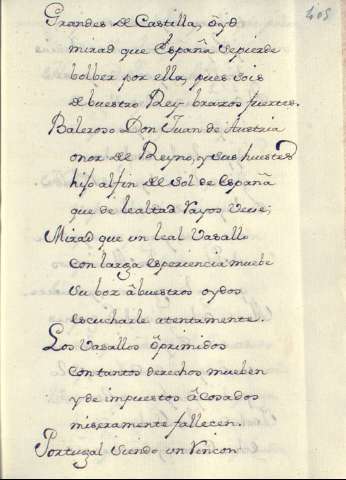 405
Grandes de Castilla, oyd
mirad que España se pierde
bolber por ella, pues sois
de buestro Rey brazos fuertes.
Baleroso Don Juan de Austria
onor de Reyno, y sus huestes
hijo al fin de sol de España
que de lealtad rayos vere;
Mirad que un leal Vasallo
con larga esperiencia muebe
su boz â buestros oydos
escucharle atentamente.
Los Vasallos ôprimidos
con tantos derechos mueben
y de impuestos âcosados
miseramente fallecen.
Portugal siendo un rincon